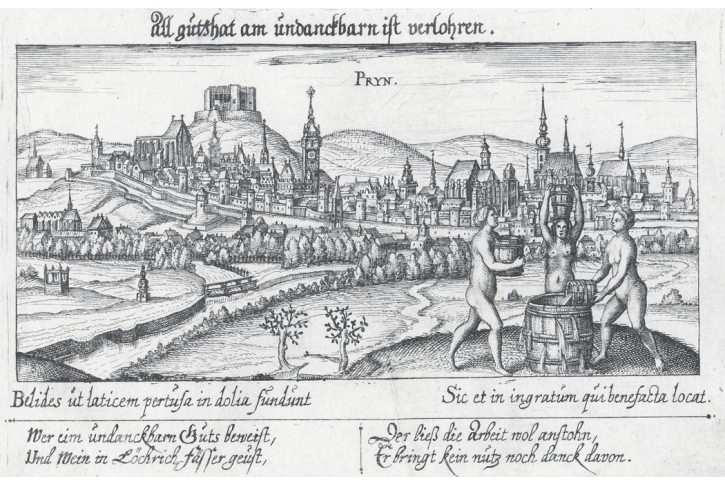 All gůtthat am ůndanckbarn ist verlohren.
PRYN.
Belides ůt laticem pertusa in dolia fundunt
Sic et in ingratum qui benefacta locat.
Wer eim ůndanckbarn Gůts beweist,
Und Wein in Löchrich fässer geust,
Der ließ die Arbeit wol anstohn,
Er bringt kein nůtz noch danck davon.